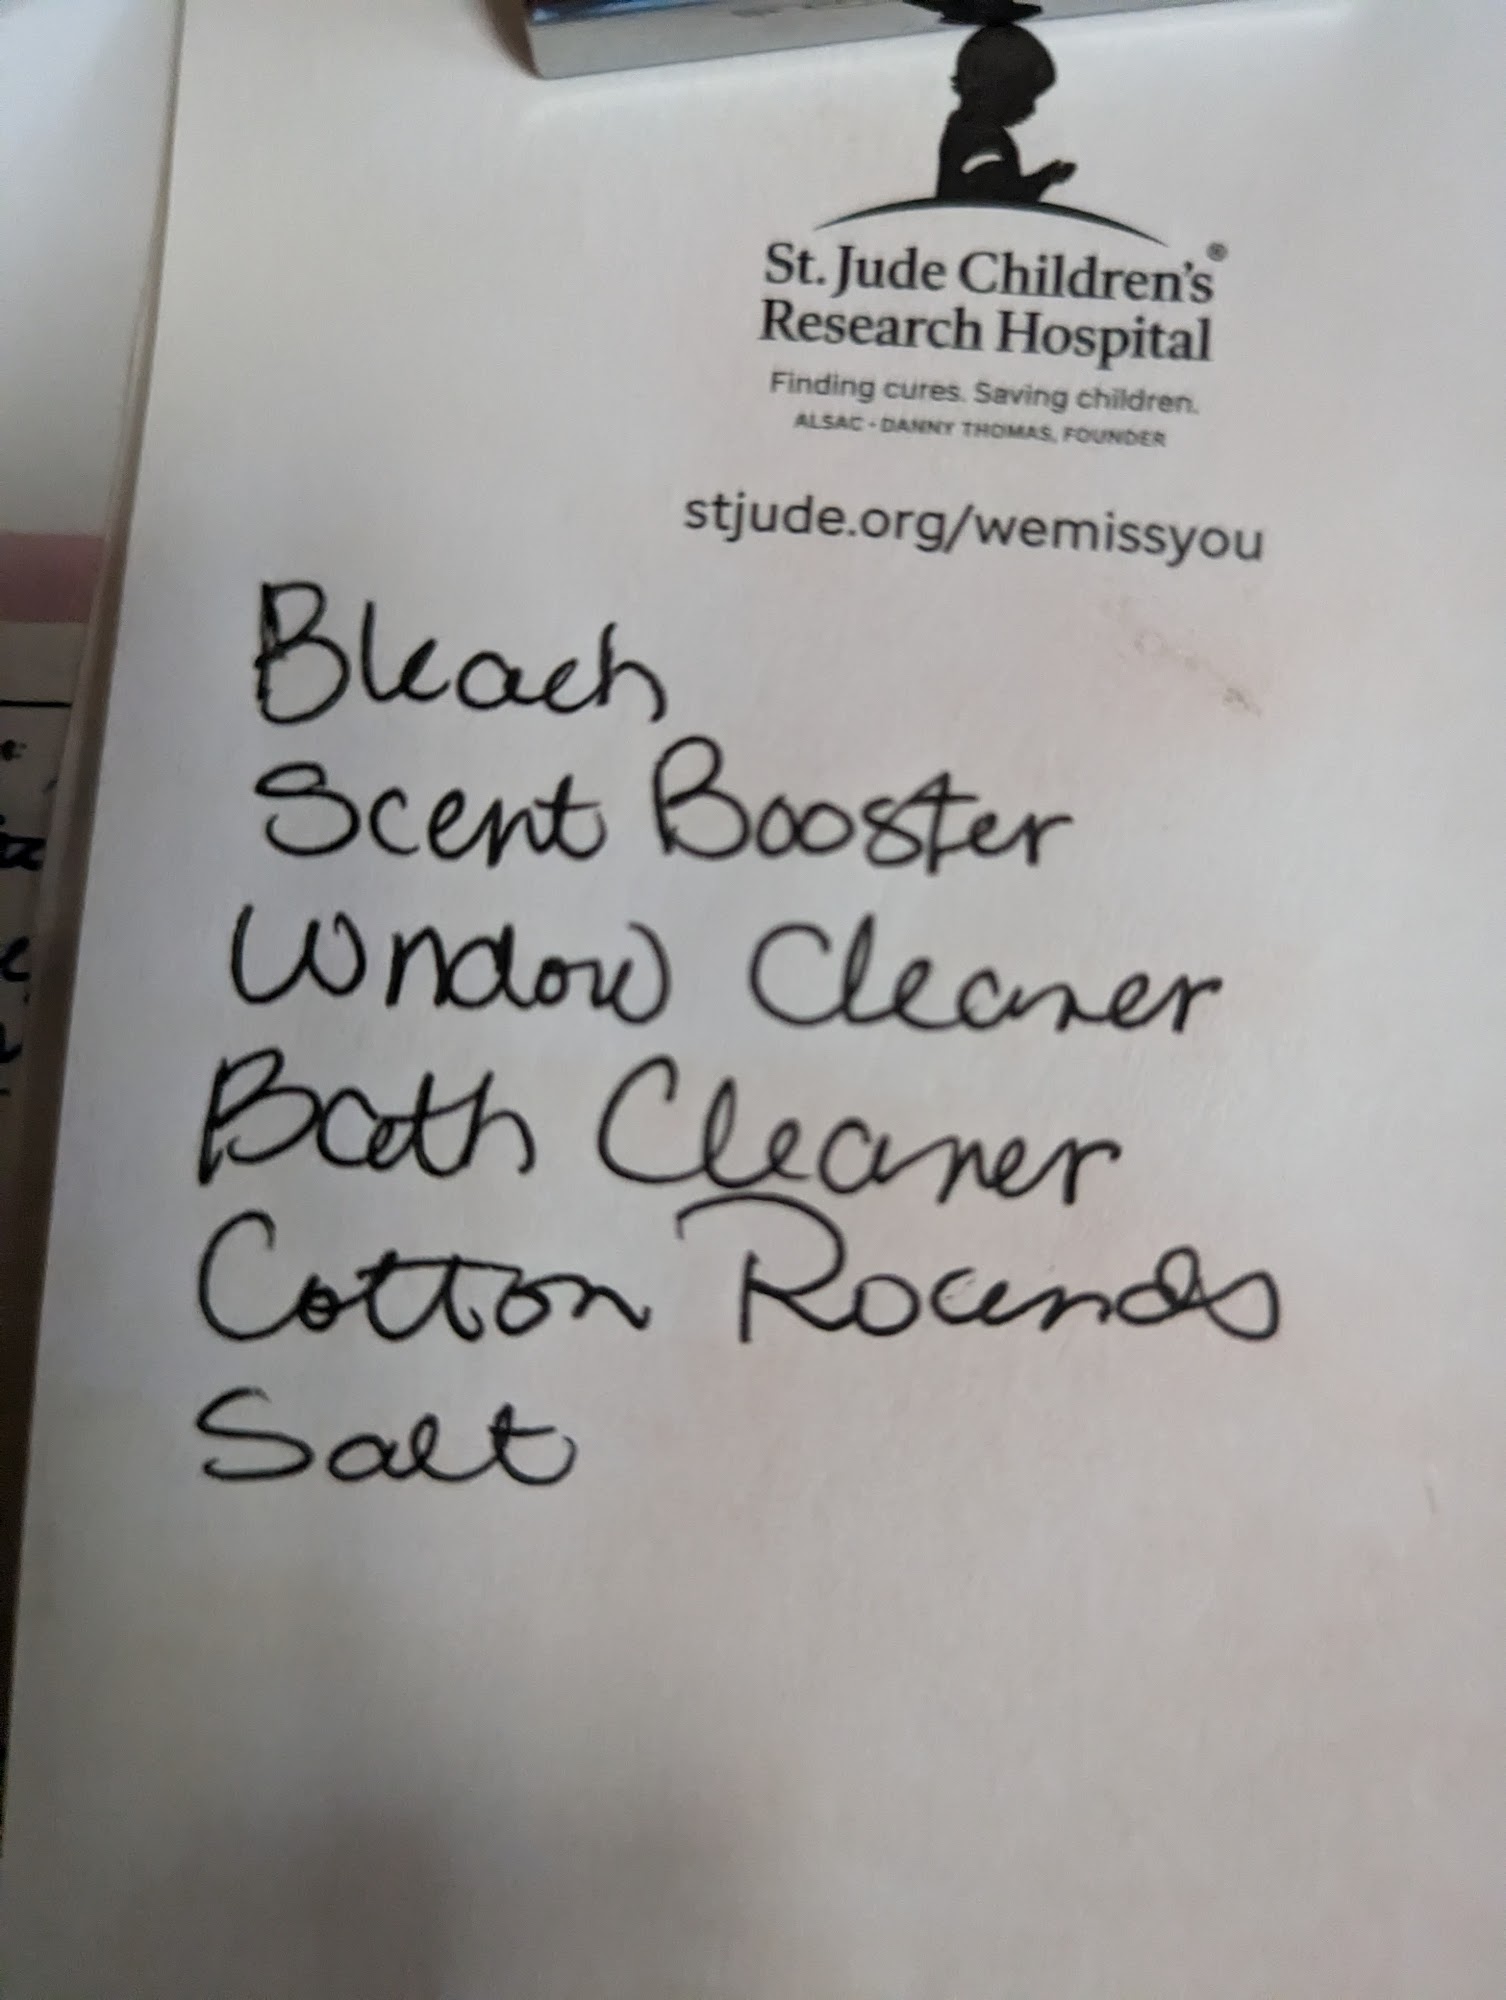 St. Jude Children's®
Research Hospital
Finding cures. Saving children.
ALSAC • DANNY THOMAS, FOUNDER
stjude.org/wemissyou
Bleach
Scent Booster
Window Cleaner
Bath Cleaner
Cotton Rounds
Salt